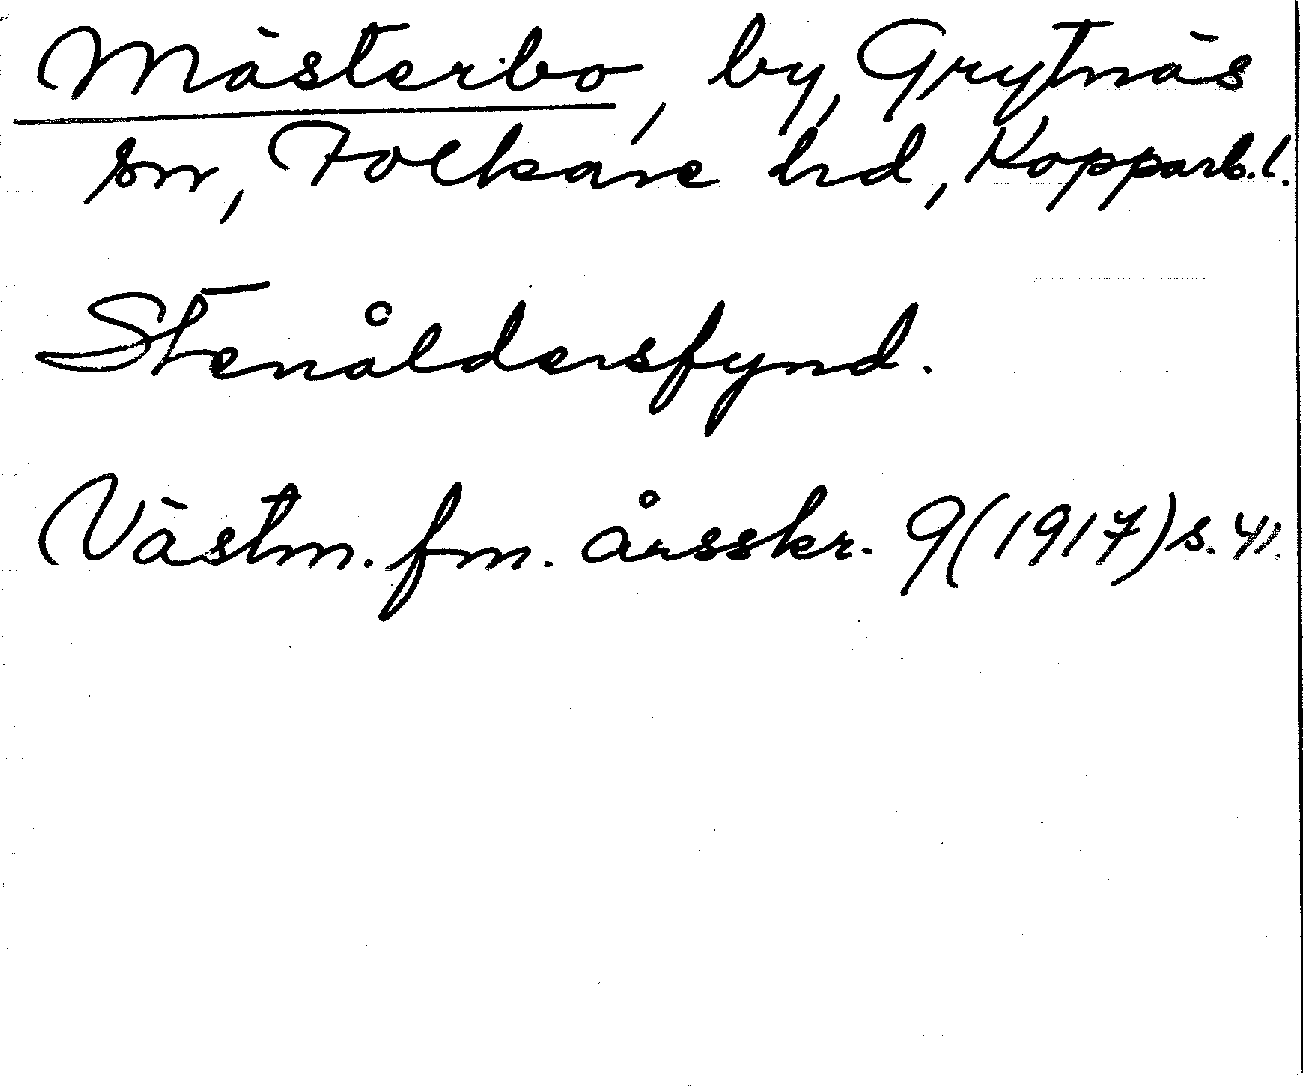 Mästerbo, by, Grytnäs
sn, Folkare hrd, Kopparb.l.
Stenåldersfynd.
Västm. fm. årsskr. 9(1917)s. 41.